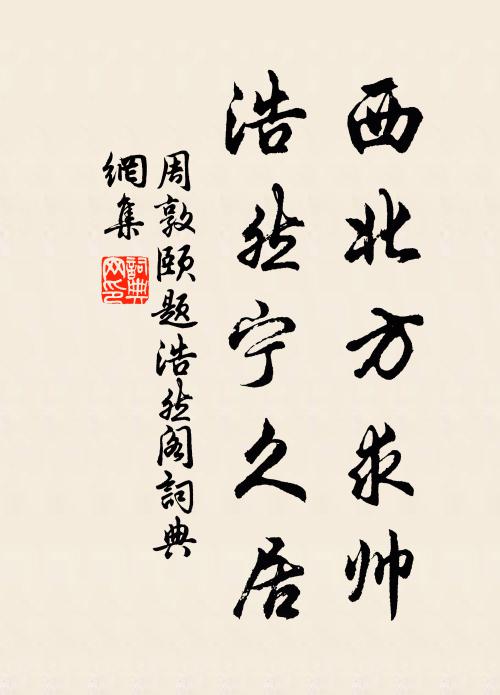 西北方求帅
浩然宁久居
周敦颐题浩然阁詞典
網集
詞典网印